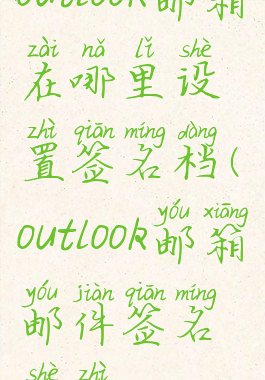 outlook邮箱
zài nǎ lǐ shè
在哪里设
zhì qiān míng dàng
置签名档(
yóu xiāng
outlook邮箱
yóu jiàn qiān míng
邮件签名
shè zhì